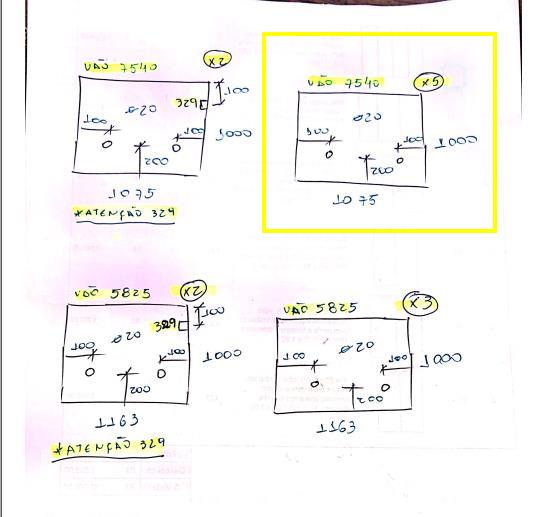 VÃO 7540 X2
100
329
ø20
100 100 1000
200
1075
*ATENÇÃO 329
VÃO 7540 X5
ø20
100 100 1000
200
1075
VÃO 5825 X2
100
329
ø20
100 100 1000
200
1163
*ATENÇÃO 329
VÃO 5825 X3
ø20
100 100 1000
200
1163